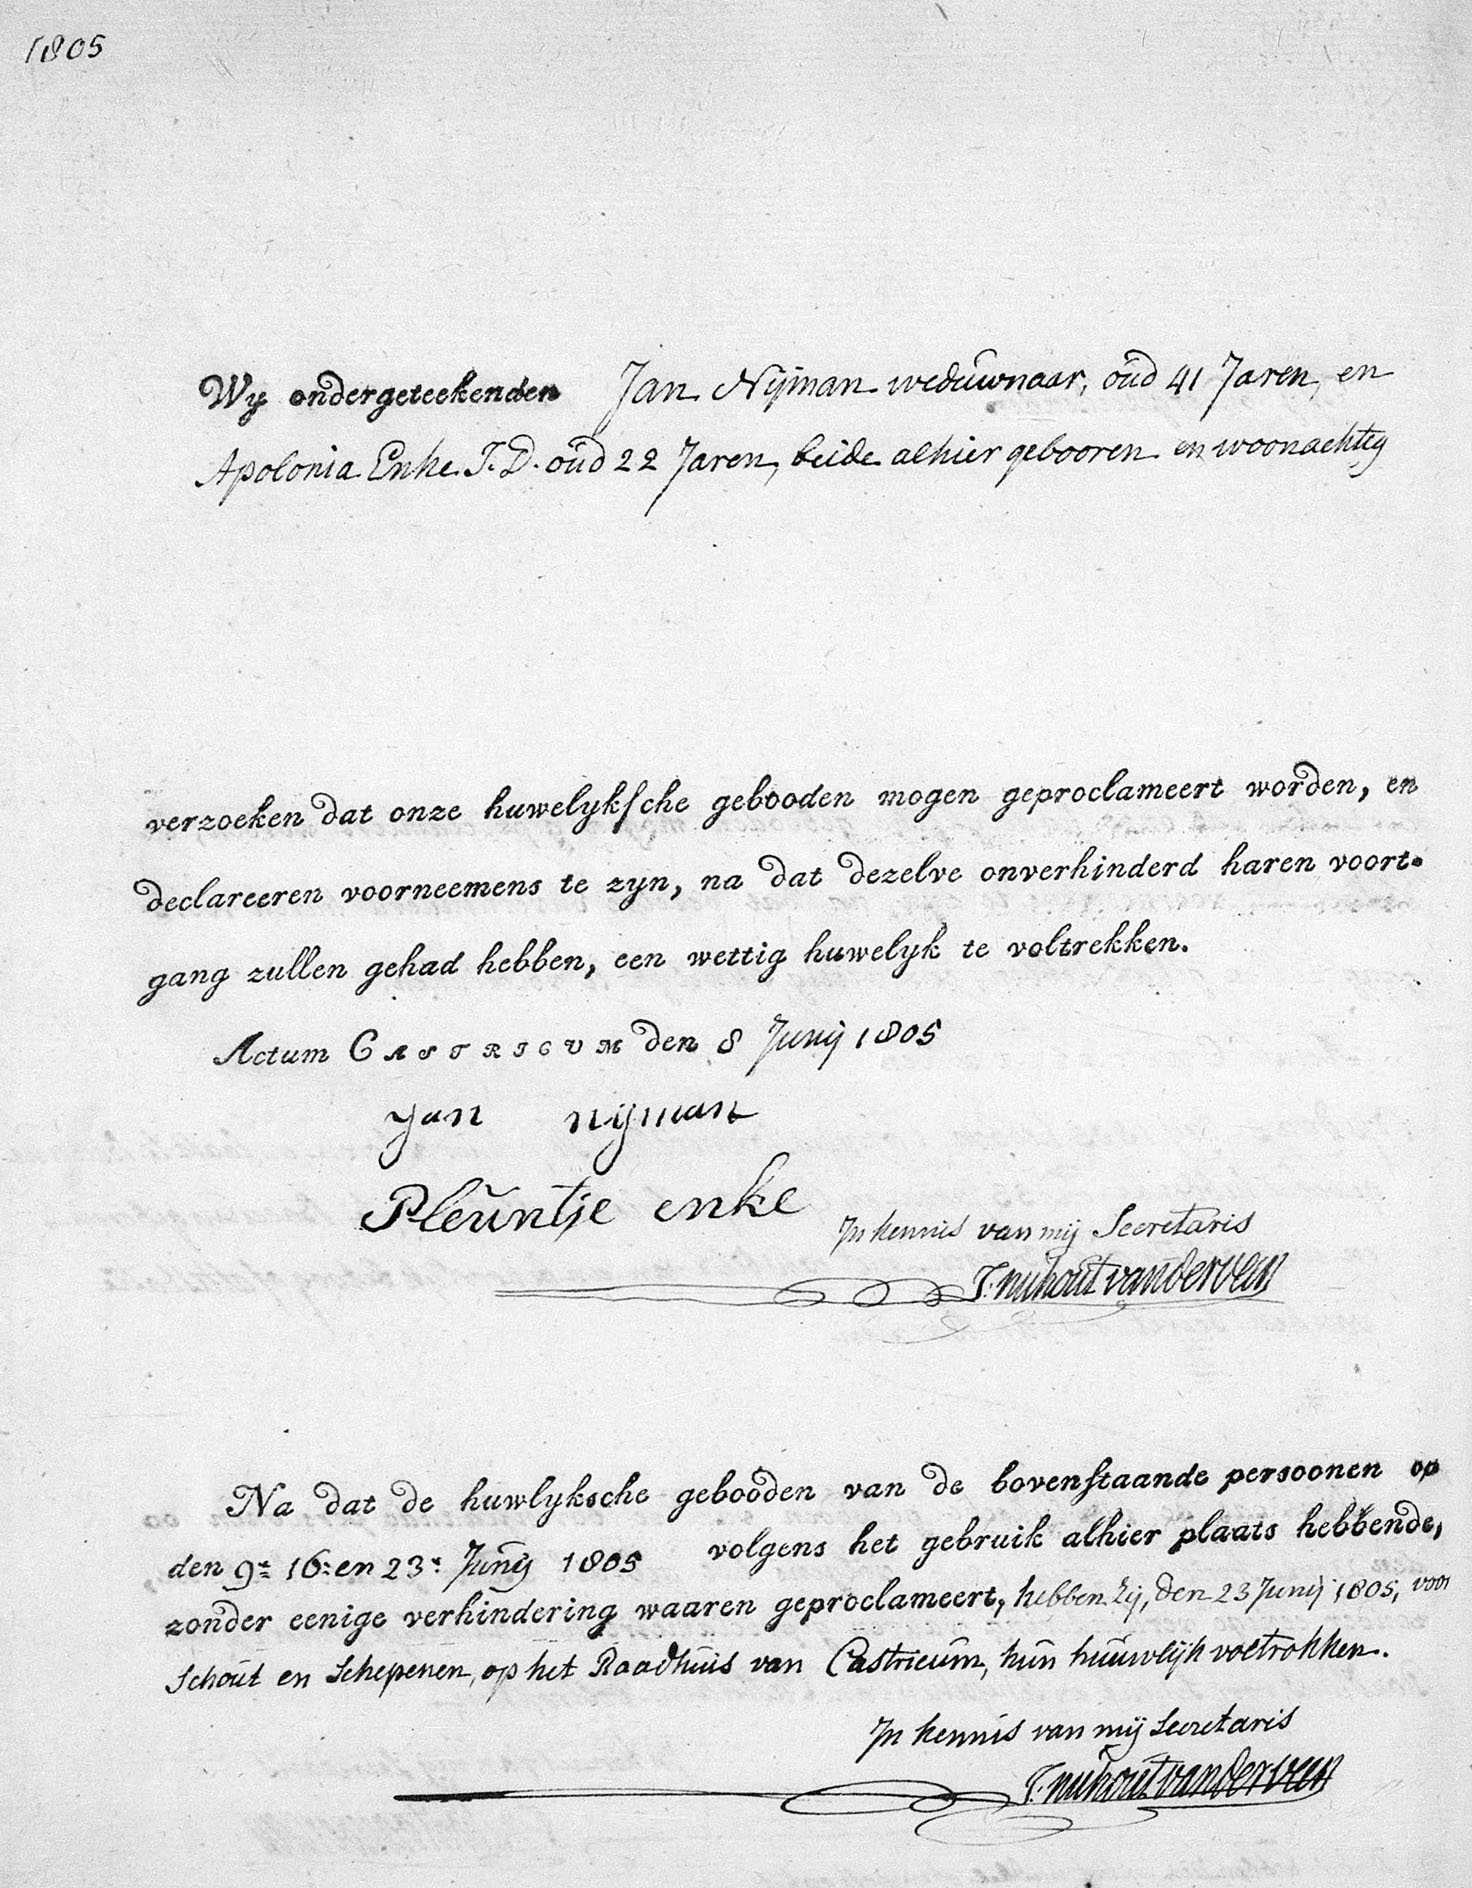 1805
Wy ondergeteekenden Jan Nijman weduwnaar, oud 41 Jaren, en
Apolonia Enke J. D. oud 22 Jaren, beide alhier gebooren en woonachtig
verzoeken dat onze huwelyksche gebooden mogen geproclameert worden, en
declareeren voorneemens te zyn, na dat dezelve onverhinderd haren voort-
gang zullen gehad hebben, een wettig huwelyk te voltrekken.
Actum CASTRICUM den 8 Junij 1805
Jan nijman
Pleuntje enke
In kennis van mij Secretaris
J. nuhout van der veen
Na dat de huwlyksche gebooden van de bovenstaande persoonen op
den 9e 16e en 23e Junij 1805 volgens het gebruik alhier plaats hebbende,
zonder eenige verhindering waaren geproclameert, hebben zij, den 23 Junij 1805, voor
Schout en Schepenen, op het Raadhuis van Castricum, hun huuwlijk voltrokken.
In kennis van mij Secretaris
J. nuhout van der veen